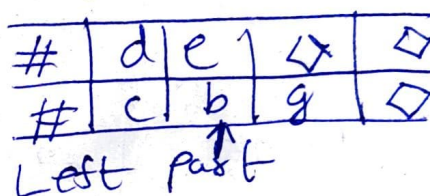 # d e ◇ ◇
# c b g ◇
↑
Left part